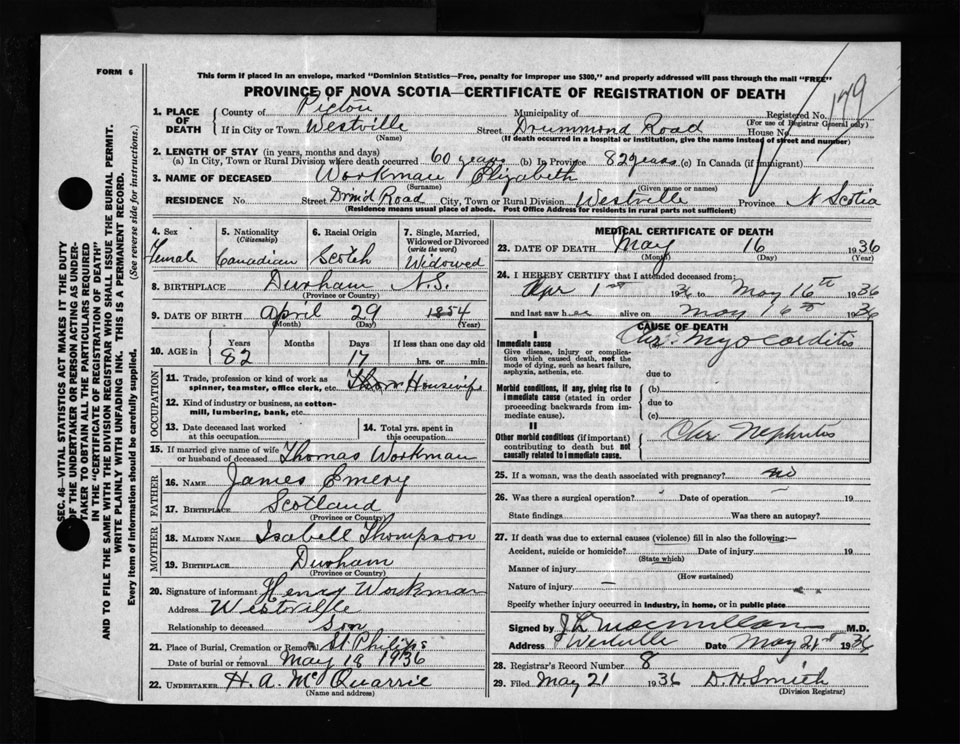 FORM 6
This form if placed in an envelope, marked "Dominion Statistics—Free, penalty for improper use $300," and properly addressed will pass through the mail "FREE"
PROVINCE OF NOVA SCOTIA—CERTIFICATE OF REGISTRATION OF DEATH
179
1. PLACE OF DEATH
County of Pictou Municipality of Registered No.
(For use of Registrar General only)
If in City or Town Westville Street Drummond Road House No.
(Name) (If death occurred in a hospital or institution, give the name instead of street and number)
2. LENGTH OF STAY (in years, months and days)
(a) In City, Town or Rural Division where death occurred 60 years (b) In Province 82 years (c) In Canada (if immigrant)
3. NAME OF DECEASED Workman Elizabeth
(Surname) (Given name or names)
RESIDENCE No. Street Drm'd Road City, Town or Rural Division Westville Province N Scotia
(Residence means usual place of abode. Post Office Address for residents in rural parts not sufficient)
4. Sex
Female
5. Nationality
(Citizenship)
Canadian
6. Racial Origin
Scotch
7. Single, Married,
Widowed or Divorced
(write the word)
Widowed
8. BIRTHPLACE Durham N.S.
(Province or Country)
9. DATE OF BIRTH April 29 1854
(Month) (Day) (Year)
10. AGE in Years Months Days If less than one day old
82 17 hrs. or min.
OCCUPATION
11. Trade, profession or kind of work as
spinner, teamster, office clerk, etc. Housewife
12. Kind of industry or business, as cotton-
mill, lumbering, bank, etc.
13. Date deceased last worked
at this occupation
14. Total yrs. spent in
this occupation
15. If married give name of wife
or husband of deceased Thomas Workman
FATHER
16. NAME James Emery
17. BIRTHPLACE Scotland
(Province or Country)
MOTHER
18. MAIDEN NAME Isabell Thompson
19. BIRTHPLACE Durham
(Province or Country)
20. Signature of informant Henry Workman
Address Westville
Relationship to deceased Son
21. Place of Burial, Cremation or Removal St Philips
Date of burial or removal May 18 1936
22. UNDERTAKER H. A. McQuarrie
(Name and address)
MEDICAL CERTIFICATE OF DEATH
23. DATE OF DEATH May 16 1936
(Month) (Day) (Year)
24. I HEREBY CERTIFY that I attended deceased from:
Apr 1st 36 to May 16th 1936
and last saw her alive on May 16th 1936
CAUSE OF DEATH
I
Immediate cause
Give disease, injury or complica-
tion which caused death, not the
mode of dying, such as heart failure,
asphyxia, asthenia, etc.
Chr. Myocarditis
due to
Morbid conditions, if any, giving rise to
immediate cause (stated in order
proceeding backwards from im-
mediate cause).
(b)
due to
(c)
II
Other morbid conditions (if important)
contributing to death but not
causally related to immediate cause.
Chr Nephritis
25. If a woman, was the death associated with pregnancy? no
26. Was there a surgical operation? Date of operation 19
State findings Was there an autopsy?
27. If death was due to external causes (violence) fill in also the following:—
Accident, suicide or homicide? Date of injury 19
(State which)
Manner of injury
(How sustained)
Nature of injury —
Specify whether injury occurred in industry, in home, or in public place
Signed by Macmillan M.D.
Address Westville Date May 21st 1936
28. Registrar's Record Number 8
29. Filed May 21 1936 D. H. Smith
(Division Registrar)
SEC. 46—VITAL STATISTICS ACT MAKES IT THE DUTY
OF THE UNDERTAKER OR PERSON ACTING AS UNDER-
TAKER TO OBTAIN ALL THE PARTICULARS REQUIRED
IN THE "CERTIFICATE OF REGISTRATION OF DEATH"
AND TO FILE THE SAME WITH THE DIVISION REGISTRAR WHO SHALL ISSUE THE BURIAL PERMIT.
WRITE PLAINLY WITH UNFADING INK. THIS IS A PERMANENT RECORD.
Every item of information should be carefully supplied. (See reverse side for instructions.)